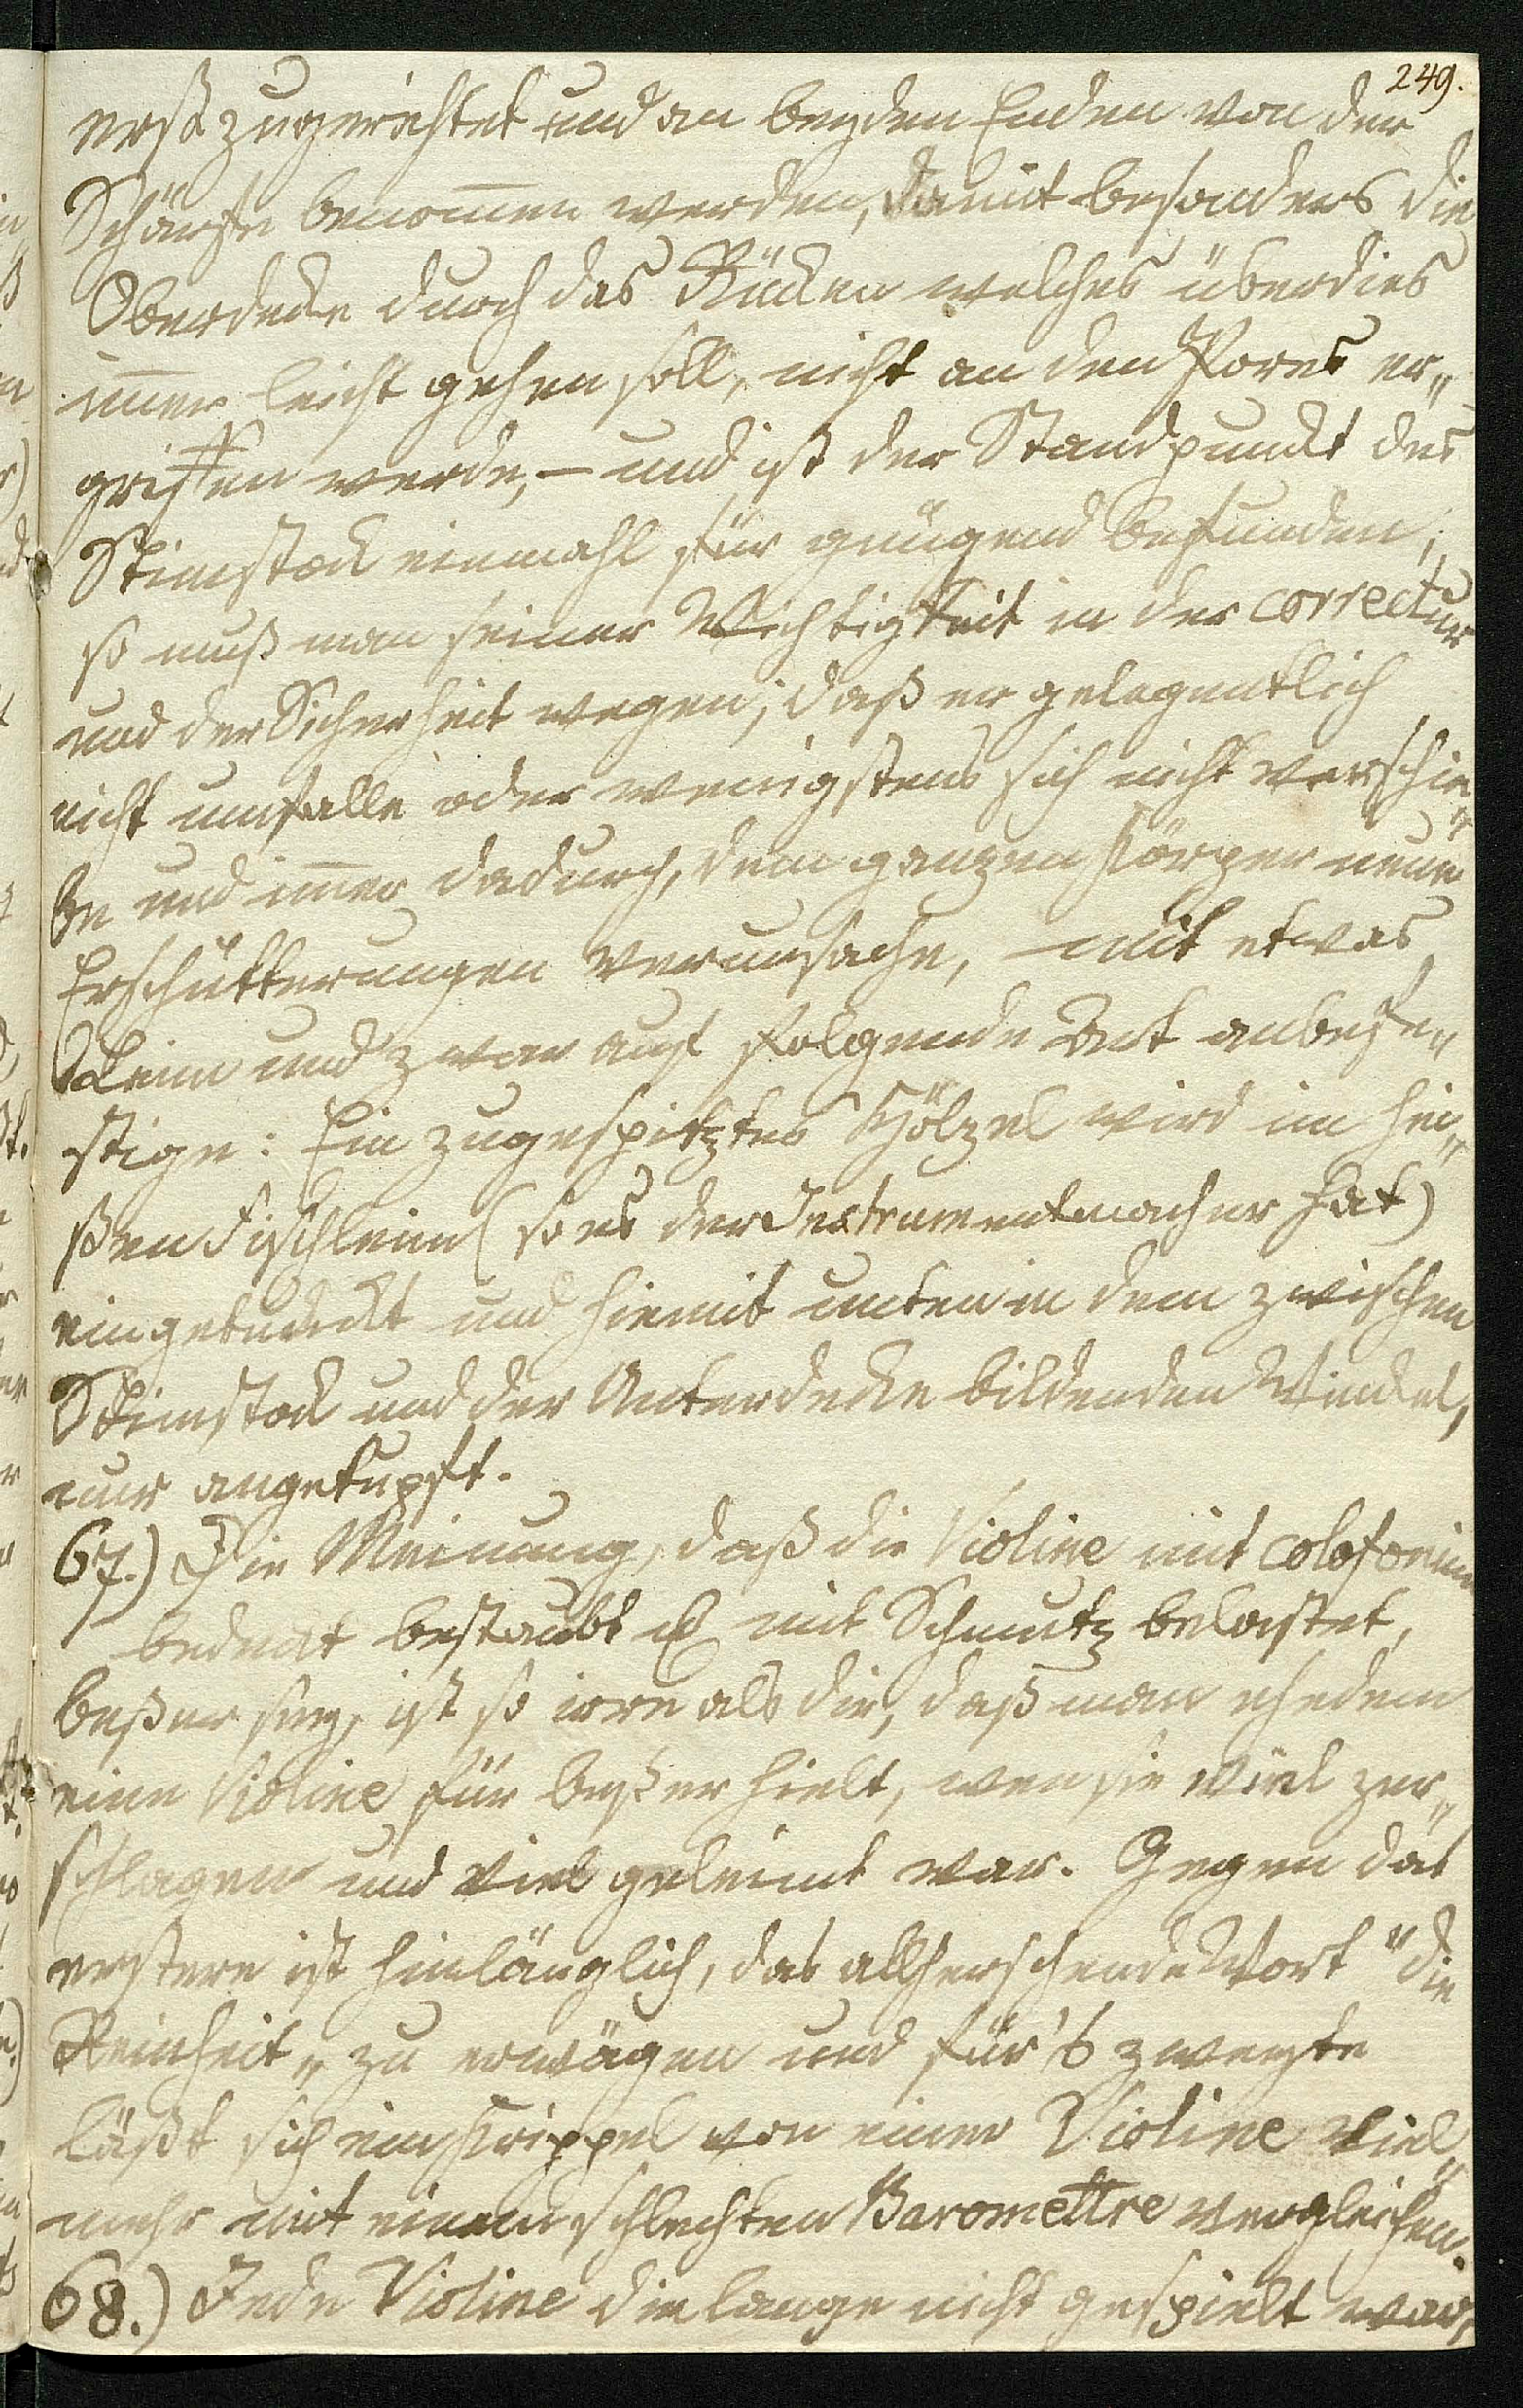 249.
erst zugerichtet und an beyden Enden von der
Schärfe benom̅en werden, damit besonders die
Oberdecke durch das Rücken welches überdies
im̅er leicht gehen soll, nicht an den Pores er„
griffen werde, – und ist der Standpunckt des
Stim̅stock einmahl für genügend befunden;
so muß man seiner Wichtigkeit in der correctur
und der Sicherheit wegen; daß er gelegentlich
nicht umfalle oder wenigstens sich nicht verschie„
be und im̅er dadurch, dem ganzen Körper neue
Erschütterungen verursache, mit etwas
Leim und zwar auf folgende Art anbefe„
stige: Ein zugespitztes Hölzel wird im hei„
ßen Fischleim (so es der Instrumentmacher hat)
eingetunckt und hiemit unten in dem zwischen
Stim̅stock und der Unterdecke bildenden Winckel,
nur angetupft.
67.) Die Meinung, daß die Violine mit colofonium
bedeckt bestaubt u mit Schmutz belastet,
beßer sey, ist so irre als die, daß man ehedem
eine Violine für beßer hielt, wen sie viel zer„
schlagen und viel geleimt war. Gegen das
erstere ist hinlänglich, das allherschende Wort "die
Reinheit„ zu erwägen und für's zweyte
läßt sich ein Krippel von einer Violine viel„
mehr mit einem schlechten Baromettre vergleichen.
68.) Jede Violine die lange nicht gespielt war,